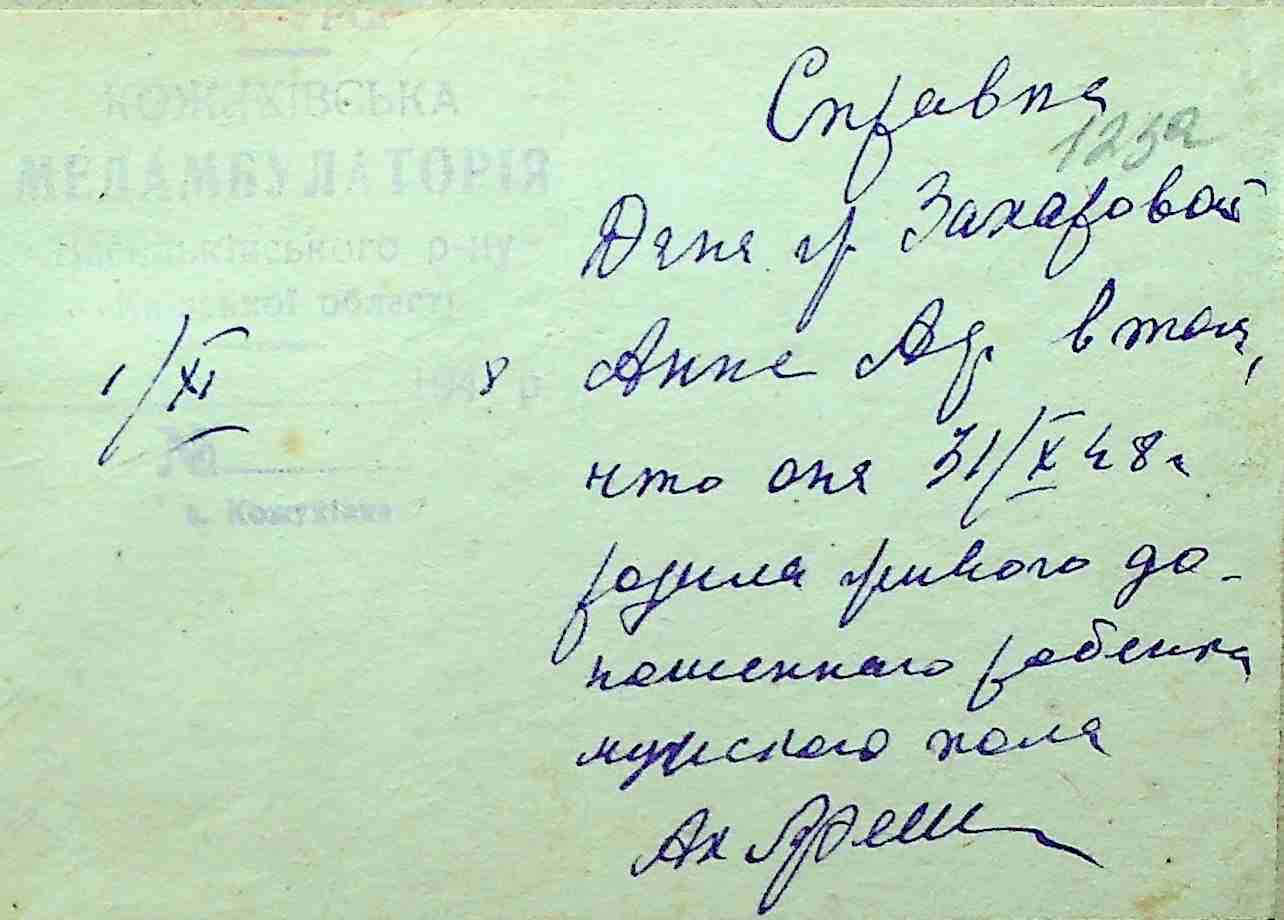 КОЖУХІВСЬКА
МЕДАМБУЛАТОРІЯ
Васильківського р-ну
Київської області
1/XI 1948 р
№
с. Кожухівка
Справка
125а
Дана гр Захаровой
Анне Ад. в том,
что она 31/X 48г
родила живого до-
ношенного ребенка
мужского пола
Ак